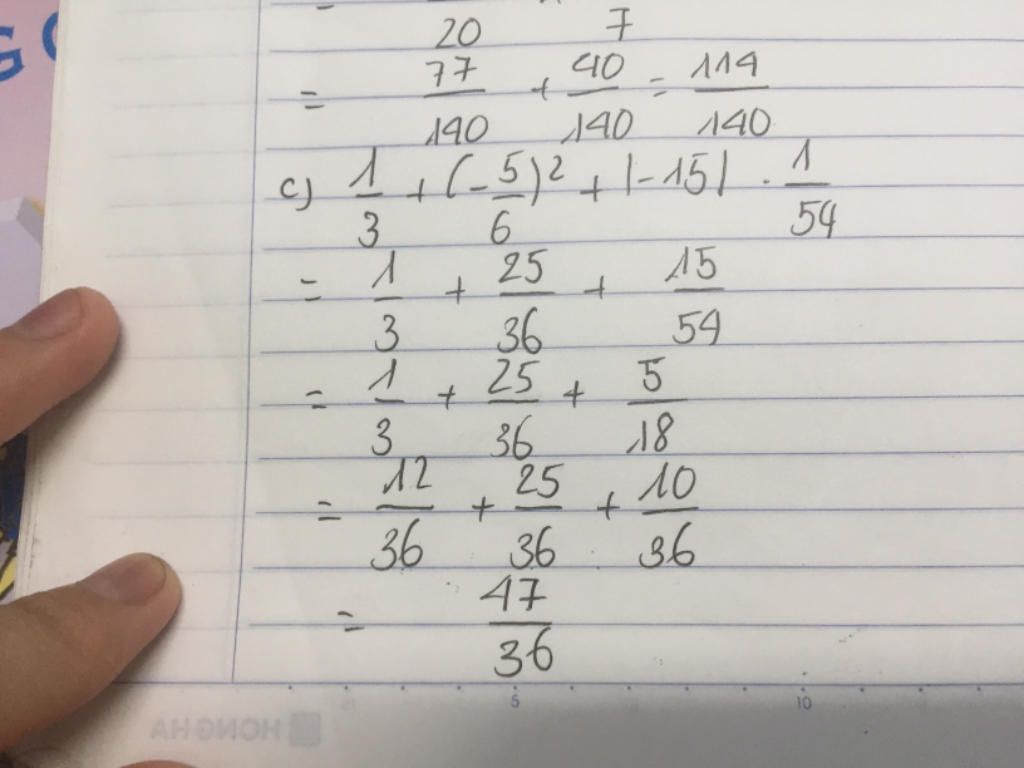 =
20 7
= 77/140 + 40/140 = 114/140
c) 1/3 + (-5/6)² + |-15| · 1/54
= 1/3 + 25/36 + 15/54
= 1/3 + 25/36 + 5/18
= 12/36 + 25/36 + 10/36
= 47/36
5 10
HONG HA